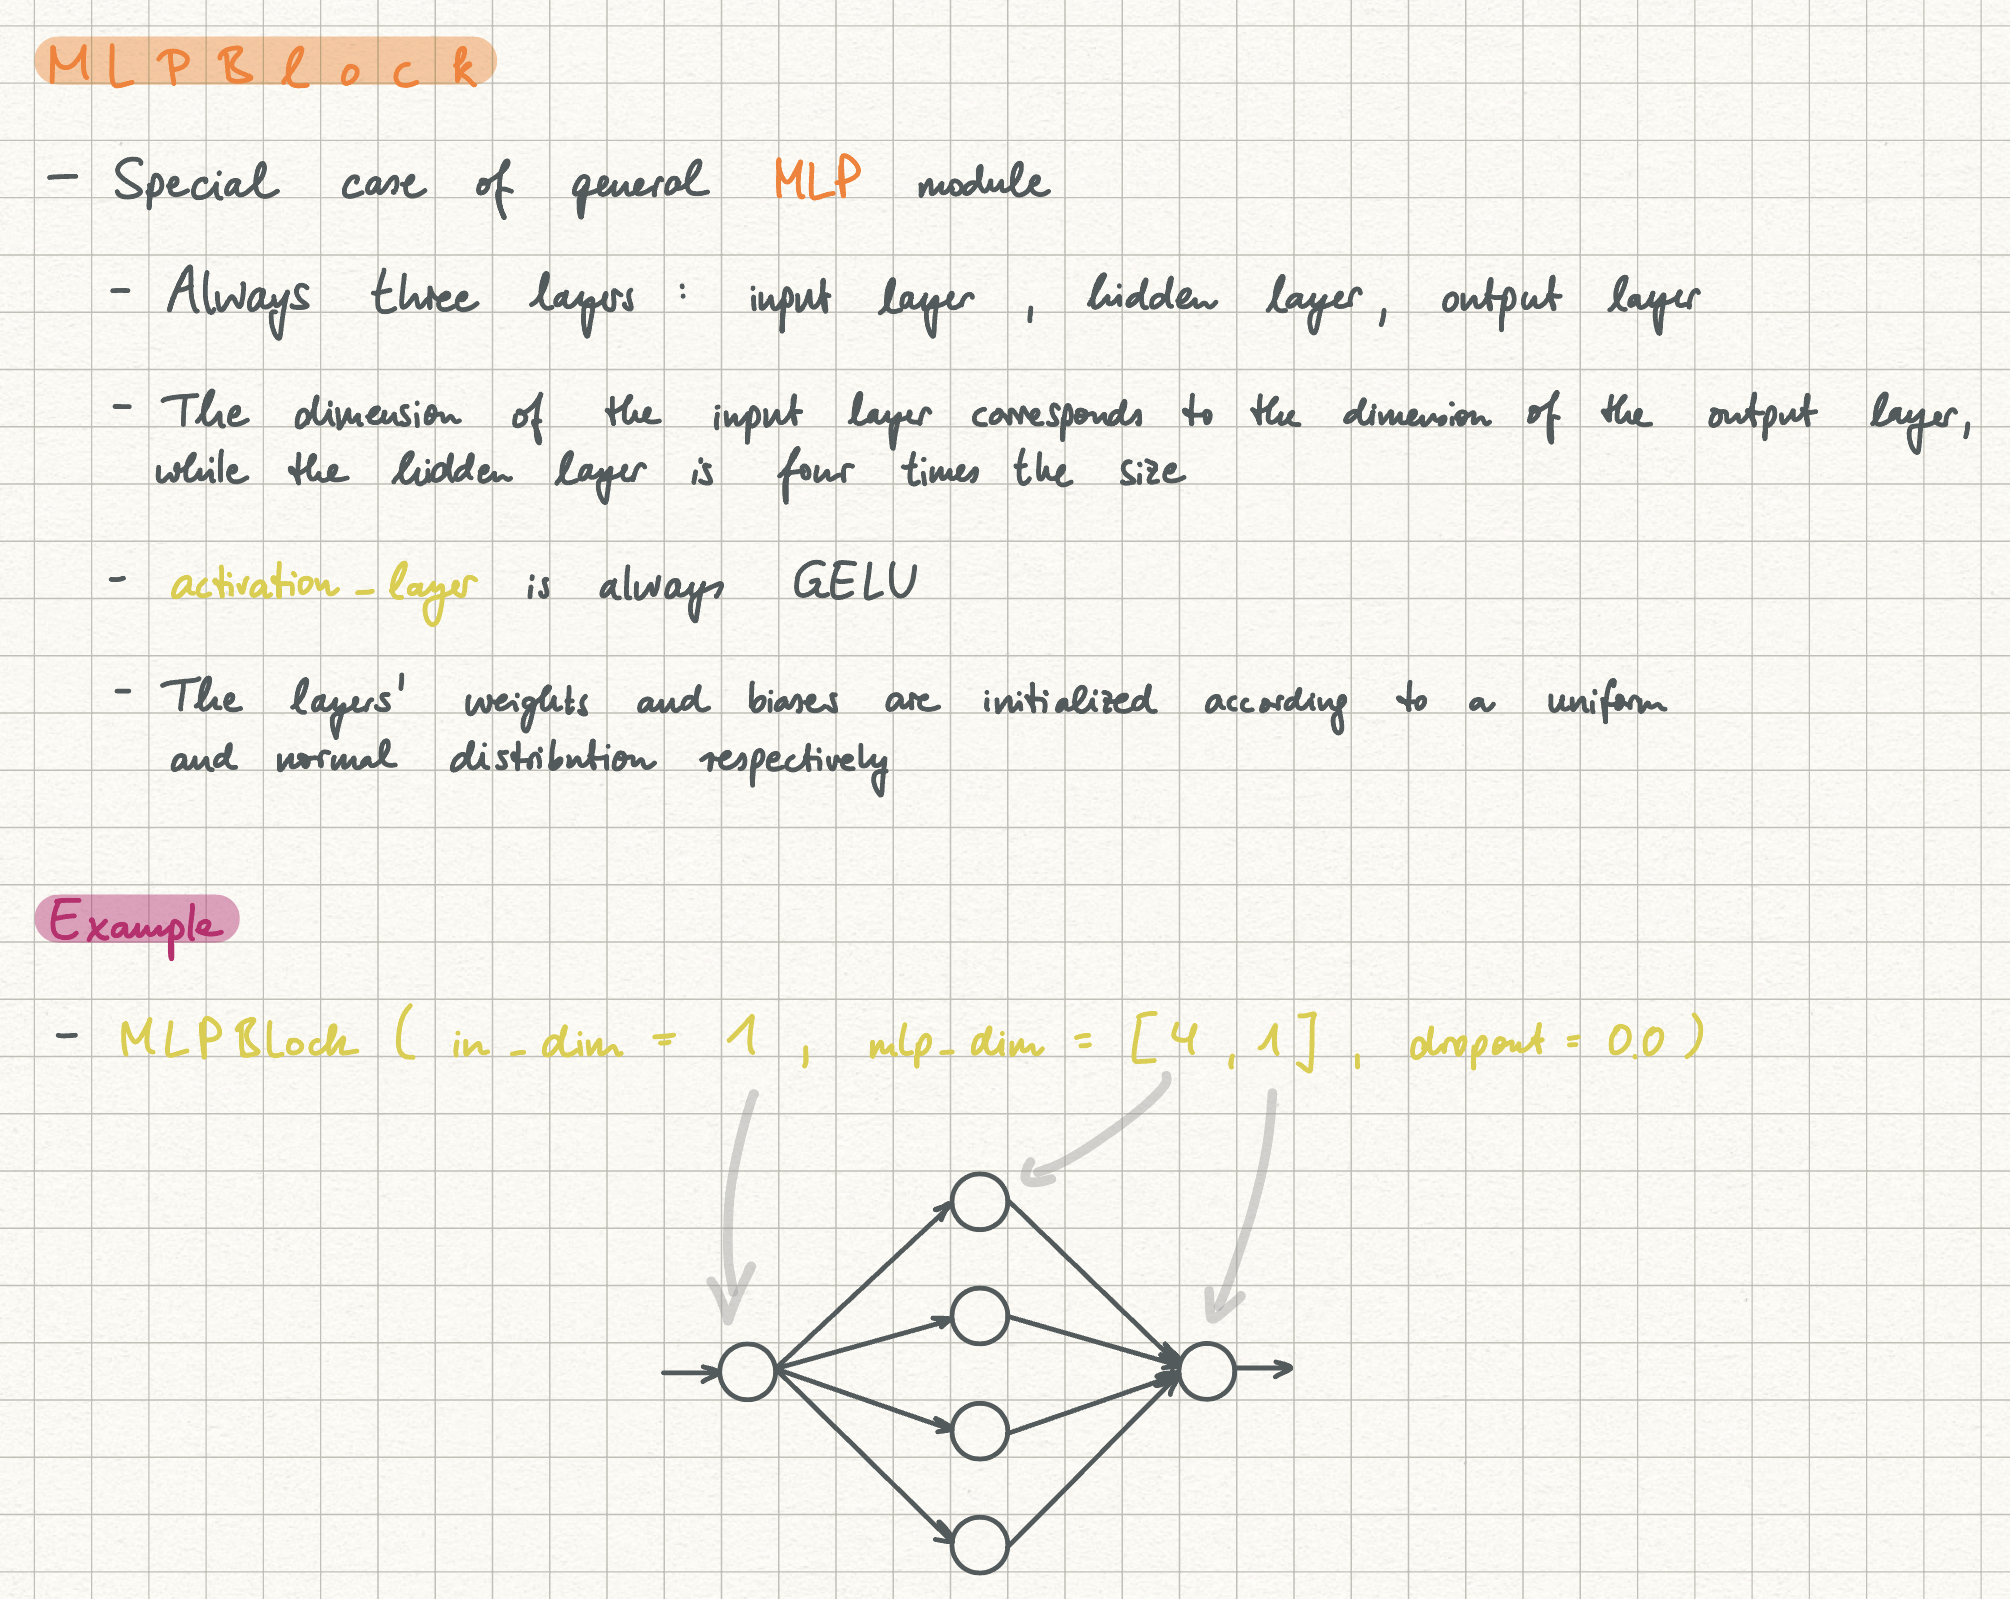 MLPBlock
- Special case of general MLP module
- Always three layers: input layer, hidden layer, output layer
- The dimension of the input layer corresponds to the dimension of the output layer,
while the hidden layer is four times the size
- activation_layer is always GELU
- The layers' weights and biases are initialized according to a uniform
and normal distribution respectively
Example
- MLPBlock (in_dim = 1, mlp_dim = [4, 1], dropout = 0.0)